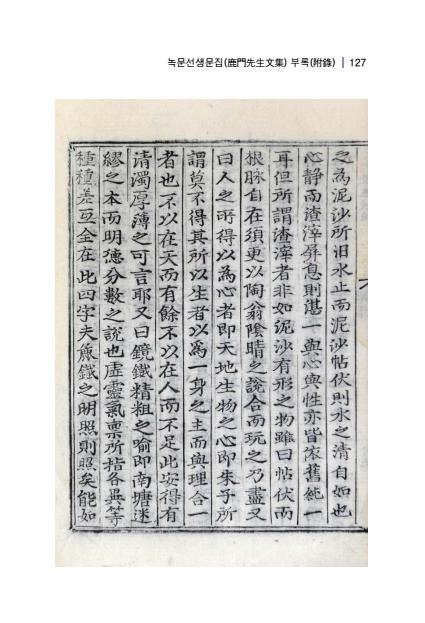 녹문선생문집(鹿門先生文集) 부록(附錄) | 127
之為泥沙所汩水止而泥沙帖伏則水之清自如也
心靜而渣滓屏息則湛一與心與性亦皆依舊純一
耳但所謂渣滓者非如泥沙有形之物雖曰帖伏而
根脉自在須更以陶翁陰晴之說合而玩之乃盡又
曰人之所得以為心者即天地生物之心即朱子所
謂莫不得其所以生者以爲一身之主而與理合一
者也不以在天而有餘不以在人而不足此安得有
清濁厚薄之可言耶又曰鏡鐵精粗之喻即南塘迷
繆之本而明德分數之說也虛靈氣稟所指各異等
種種差互全在此四字夫無鐵之明照則照矣能如